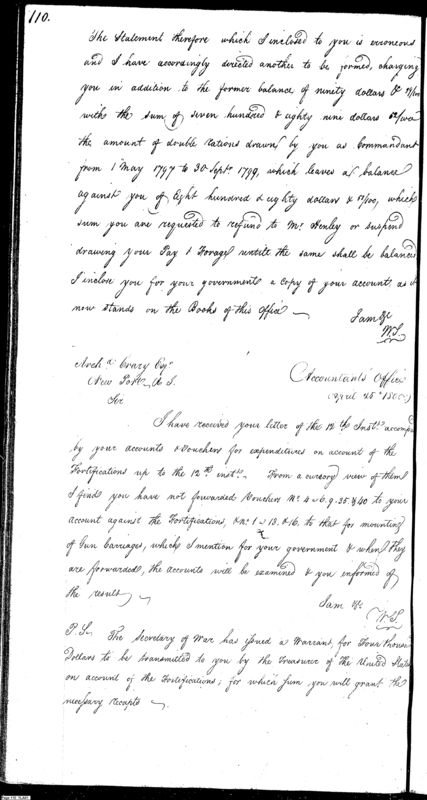 110.
The Statement therefore which I inclosed to you is erroneous
and I have accordingly directed another to be formed, charging
you in addition to the former balance of ninety dollars &
with the sum of seven hundred & eighty nine dollars
the amount of double rations drawn by you as Commandant
from 1 May 1797 to 30 Septr. 1799, which leaves a balance
against you of Eight hundred & eighty dollars &, which
sum you are requested to refund to Mr. Henley or suspend
drawing your Pay & Forage untill the same shall be balanced
I inclose you for your government a copy of your account, as it
now stands on the Books of this Office —
I am &c
W.S.
Archd. Crary Esqr.
New Port R.I.
Accountants Office
April 25th 1800
Sir
I have received your letter of the 12th Instt. accompd
by your accounts & Vouchers for expenditures on account of the
Fortifications up to the 12th instt. From a cursory view of them
I find you have not forwarded Vouchers No. 4 6. 9. 35. & 40 to your
account against the Fortifications, & no. 1 13. & 16. to that for mounting
of Gun Carriages, which I mention for your government & when they
are forwarded, the accounts will be examined & you enformed of
the result —
I am &c
W.S.
P.S. The Secretary of War has issued a Warrant, for Four thousand
Dollars to be transmitted to you by the Treasurer of the United States
on account of the Fortifications; for which sum you will grant the
necessary receipts —